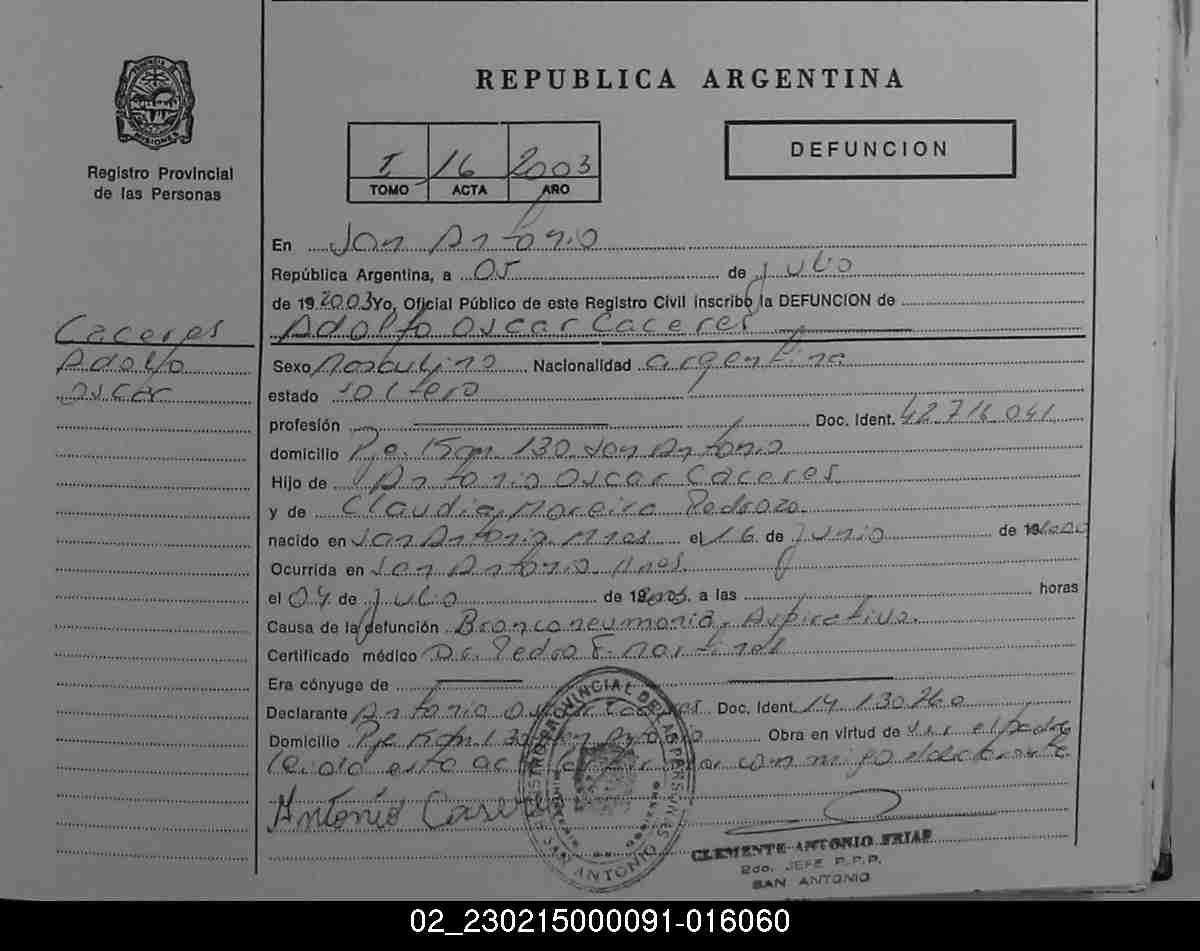 PROVINCIA DE
MISIONES
Registro Provincial
de las Personas
REPUBLICA ARGENTINA
I 16 2003
TOMO ACTA AÑO
DEFUNCION
En San Antonio
República Argentina, a 05 de julio
de 19 2003 Yo, Oficial Público de este Registro Civil inscribo la DEFUNCION de
Adolfo Oscar Caceres
Caceres
Adolfo
Oscar
Sexo Masculino Nacionalidad argentina
estado soltero
profesión Doc. Ident. 42.716.041
domicilio Pje. Km. 130 San Antonio
Hijo de Antonio Oscar Caceres
y de Claudia Moreira Pedrozo.
nacido en San Antonio, Mnes el 16 de junio de 19 2000
Ocurrida en San Antonio Mnes.
el 04 de julio de 19 2003 a las horas
Causa de la defunción Bronconeumonia, Aspirativa.
Certificado médico Dr. Pedro E. Martinez
Era cónyuge de
Declarante Antonio Oscar Caceres Doc. Ident. 14.130.260
Domicilio Pje Km 130 San Antonio Obra en virtud de ser el padre
leida esta acta firmar conmigo el declarante
Antonio Caseres
REGISTRO PROVINCIAL DE LAS PERSONAS
SAN ANTONIO
CLEMENTE ANTONIO FRIAS
2do. JEFE R.P.P.
SAN ANTONIO
02_230215000091-016060